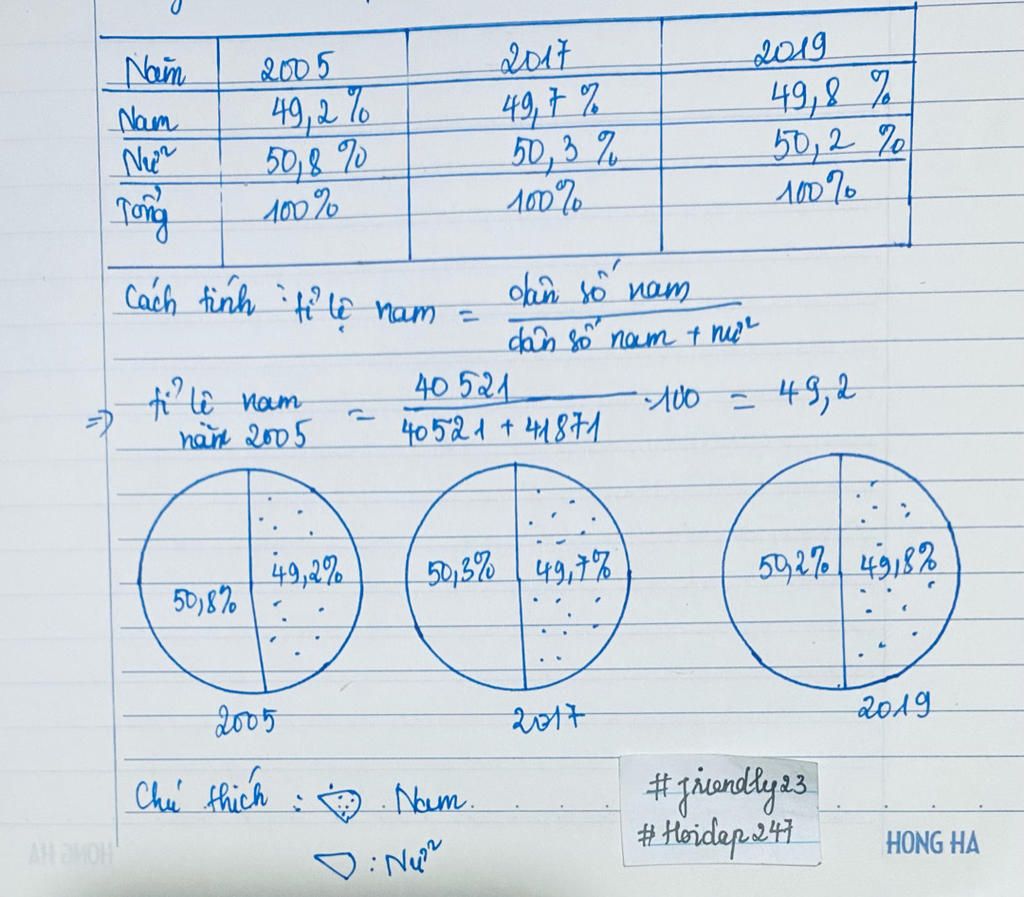 Năm 2005 2017 2019
Nam 49,2% 49,7% 49,8%
Nữ 50,8% 50,3% 50,2%
Tổng 100% 100% 100%
Cách tính : tỉ lệ nam = dân số nam
dân số nam + nữ
=> tỉ lệ nam năm 2005 = 40521
40521 + 41871
.100 = 49,2
50,8% 49,2% 50,3% 49,7% 50,2% 49,8%
2005 2017 2019
Chú thích : Nam
: Nữ
#friendly23
#Hoidap247
HONG HA